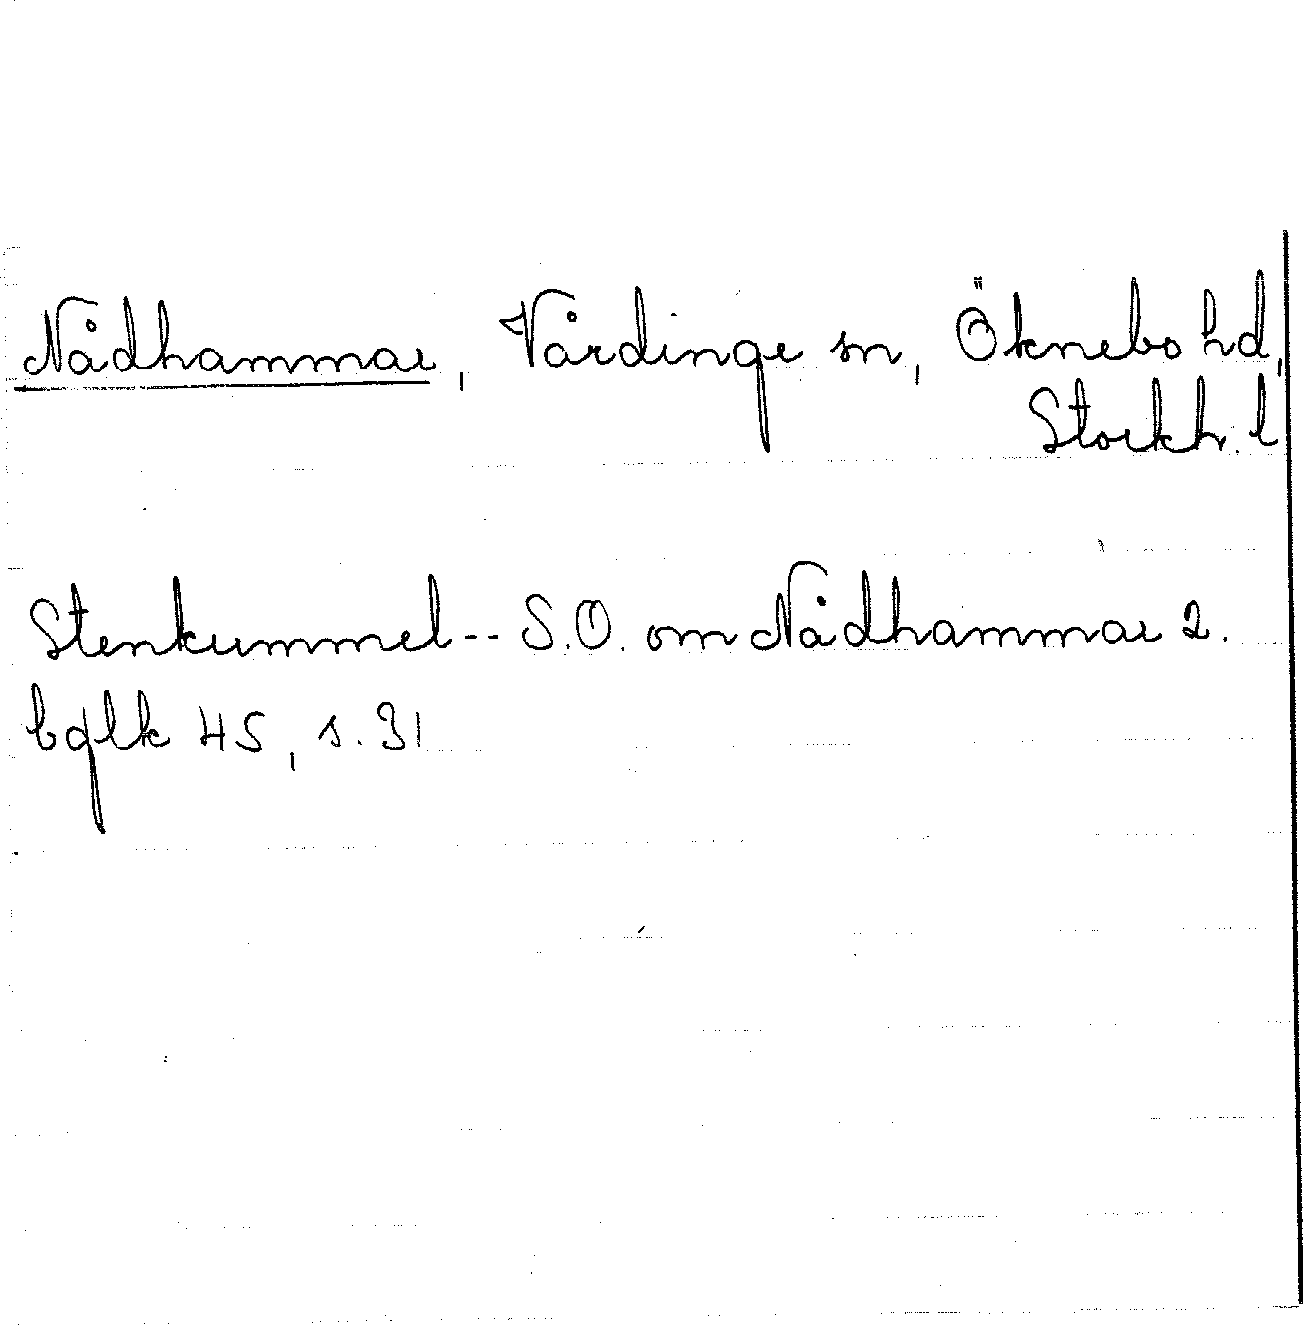 Nådhammar, Vårdinge sn, Öknebo hd,
Stockh. l
Stenkummel -- S.O. om Nådhammar 2.
bglk 45, s. 31